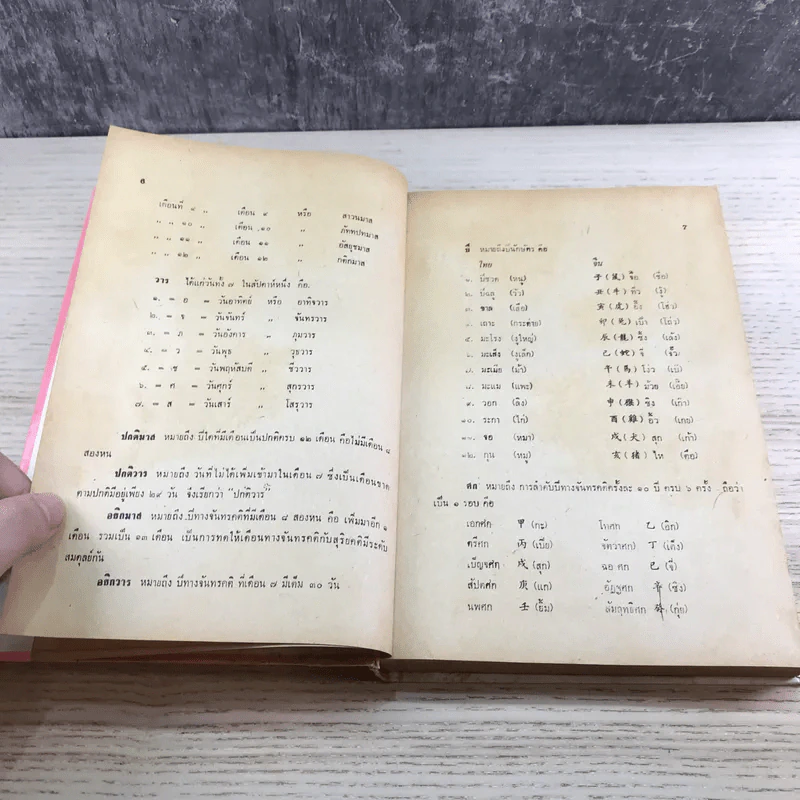 ๖
เดือนที่ ๙ „ เดือน ๙ หรือ สาวนมาส
„ „ ๑๐ „ เดือน ๑๐ „ ภัททปทมาส
„ „ ๑๑ „ เดือน ๑๑ „ อัสยุชมาส
„ „ ๑๒ „ เดือน ๑๒ „ กติกมาส
วาร ได้แก่วันทั้ง ๗ ในสัปดาห์หนึ่ง คือ.
๑. = อ = วันอาทิตย์ หรือ อาทิจวาร
๒. = จ = วันจันทร์ „ จันทรวาร
๓. = ภ = วันอังคาร „ ภุมวาร
๔. = ว = วันพุธ „ วุธวาร
๕. = ช = วันพฤหัสบดี „ ชีววาร
๖. = ศ = วันศุกร์ „ สุกรวาร
๗. = ส = วันเสาร์ „ โสรวาร
ปกติมาส หมายถึง ปีใดที่มีเดือนเป็นปกติครบ ๑๒ เดือน คือไม่มีเดือน ๘
สองหน
ปกติวาร หมายถึง วันที่ไม่ได้เพิ่มเข้ามาในเดือน ๗ ซึ่งเป็นเดือนขาด
ตามปกติมีอยู่เพียง ๒๙ วัน จึงเรียกว่า "ปกติวาร"
อธิกมาส หมายถึง ปีทางจันทรคติที่มีเดือน ๘ สองหน คือ เพิ่มมาอีก ๑
เดือน รวมเป็น ๑๓ เดือน เป็นการทดให้เดือนทางจันทรคติกับสุริยคติมีระดับ
สมดุลย์กัน
อธิกวาร หมายถึง ปีทางจันทรคติ ที่เดือน ๗ มีเต็ม ๓๐ วัน
7
ปี หมายถึงปีนักษัตร คือ
ไทย จีน
๑. ปีชวด (หนู) 子 (鼠) จื้อ (ชื้อ)
๒. ปีฉลู (วัว) 丑 (牛) ทิ่ว (งู้)
๓. ขาล (เสือ) 寅 (虎) ยิ้ง (โฮ่ว)
๔. เถาะ (กระต่าย) 卯 (兎) เบ้า (โถ่ว)
๕. มะโรง (งูใหญ่) 辰 (龍) ซิ้ง (เล้ง)
๖. มะเส็ง (งูเล็ก) 巳 (蛇) จี๋ (จั๊ว)
๗. มะเมีย (ม้า) 午 (馬) โง่ว (เบ๊)
๘. มะแม (แพะ) 未 (羊) บ้วย (เอี๊ย)
๙. วอก (ลิง) 申 (猴) ซิง (เก๊า)
๑๐. ระกา (ไก่) 酉 (雞) อิ้ว (เกย)
๑๑. จอ (หมา) 戌 (犬) สุก (เก้า)
๑๒. กุน (หมู) 亥 (猪) ไห (ตือ)
ศก หมายถึง การลำดับปีทางจันทรคติครั้งละ ๑๐ ปี ครบ ๖ ครั้ง ถือว่า
เป็น ๑ รอบ คือ
เอกศก 甲 (กะ) โทศก 乙 (อิก)
ตรีศก 丙 (เปีย) จัตวาศก 丁 (เต็ง)
เบ็ญจศก 戊 (สุก) ฉอ ศก 己 (จี๋)
สัปตศก 庚 (แก) อัฏฐศก 辛 (ซิง)
นพศก 壬 (ยิ้ม) สัมฤทธิศก 癸 (กุ่ย)